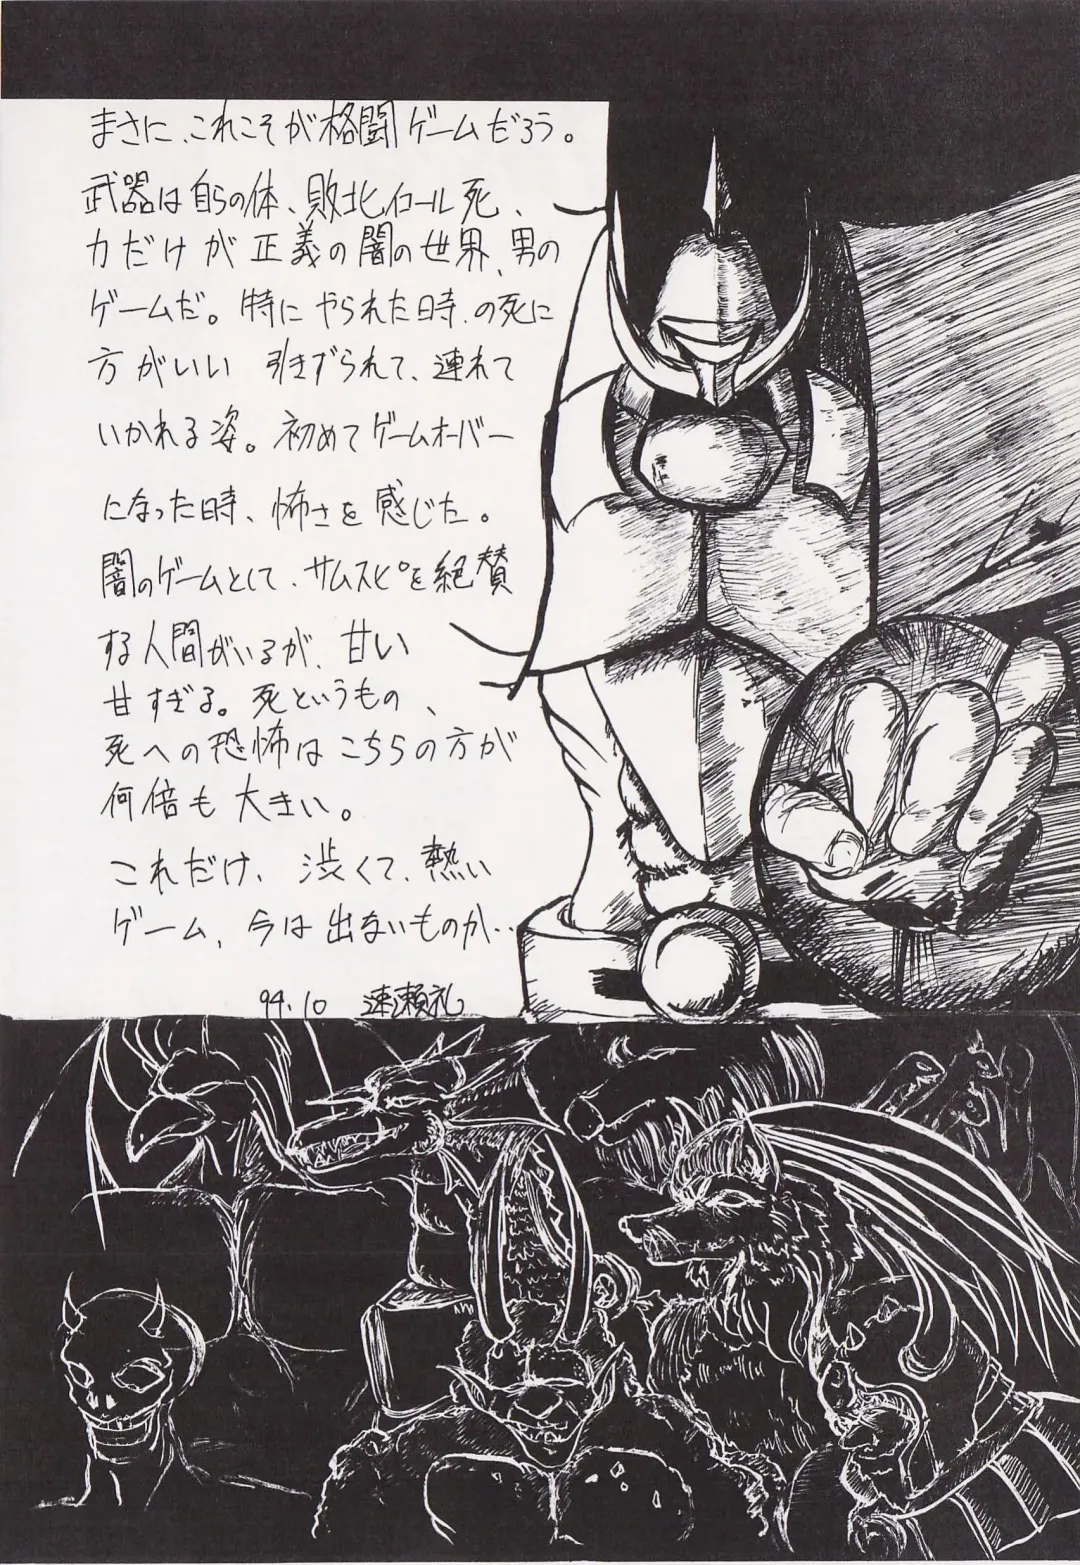 まさに、これこそが格闘ゲームだろう。
武器は自らの体、敗北イコール死、
力だけが正義の闇の世界、男の
ゲームだ。特にやられた時、の死に
方がいい 引きずられて、連れて
いかれる姿。初めてゲームオーバー
になった時、怖さを感じた。
闇のゲームとして、サムスピを絶賛
する人間がいるが、甘い
甘すぎる。死というもの、
死への恐怖はこちらの方が
何倍も大きい。
これだけ、渋くて、熱い
ゲーム、今は出ないものか‥
94.10 速瀬礼